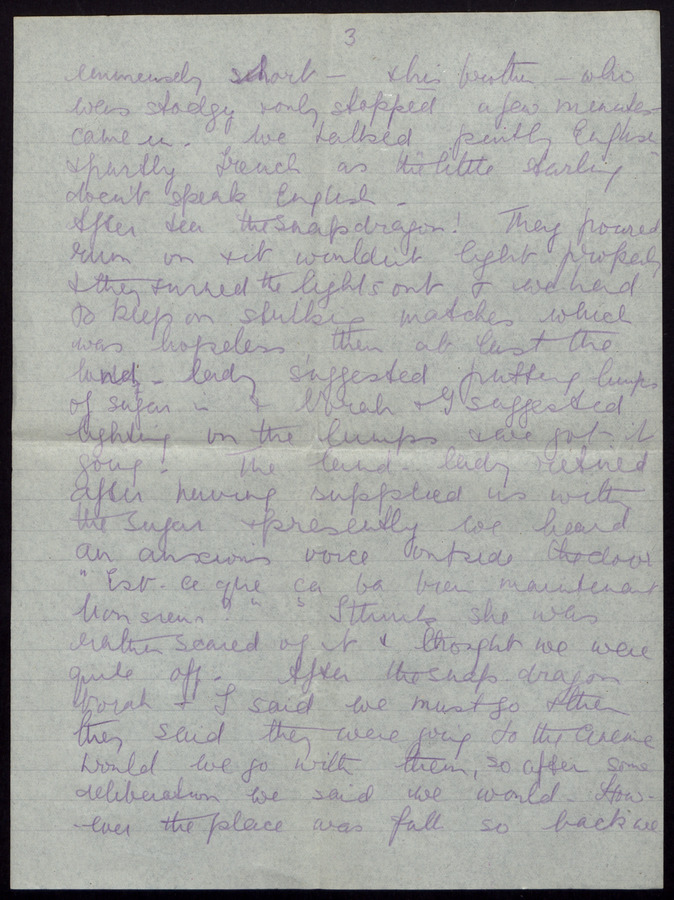 3
immensely short – & his brother – who
was stodgy & only stopped a few minutes –
came in. We talked partly English
& partly French as the little starling
doesn't speak English –
After tea the Snapdragon! They poured
rum on & it wouldn't light properly
& they turned the lights out & we had
to keep on striking matches which
was hopeless then at last the
land-lady suggested putting lumps
of sugar in & Norah & I suggested
lighting on the lumps & we got it
going! The land-lady retired
after having supplied us with
the sugar & presently we heard
an anxious voice outside the door
"Est-ce que ça va bien maintenant
Monsieur?" I think she was
rather scared of it & thought we were
quite off. After the snap-dragon
Norah & I said we must go & then
they said they were going to the Cinema
would we go with them, so after some
deliberation we said we would. How-
-ever the place was full so back we